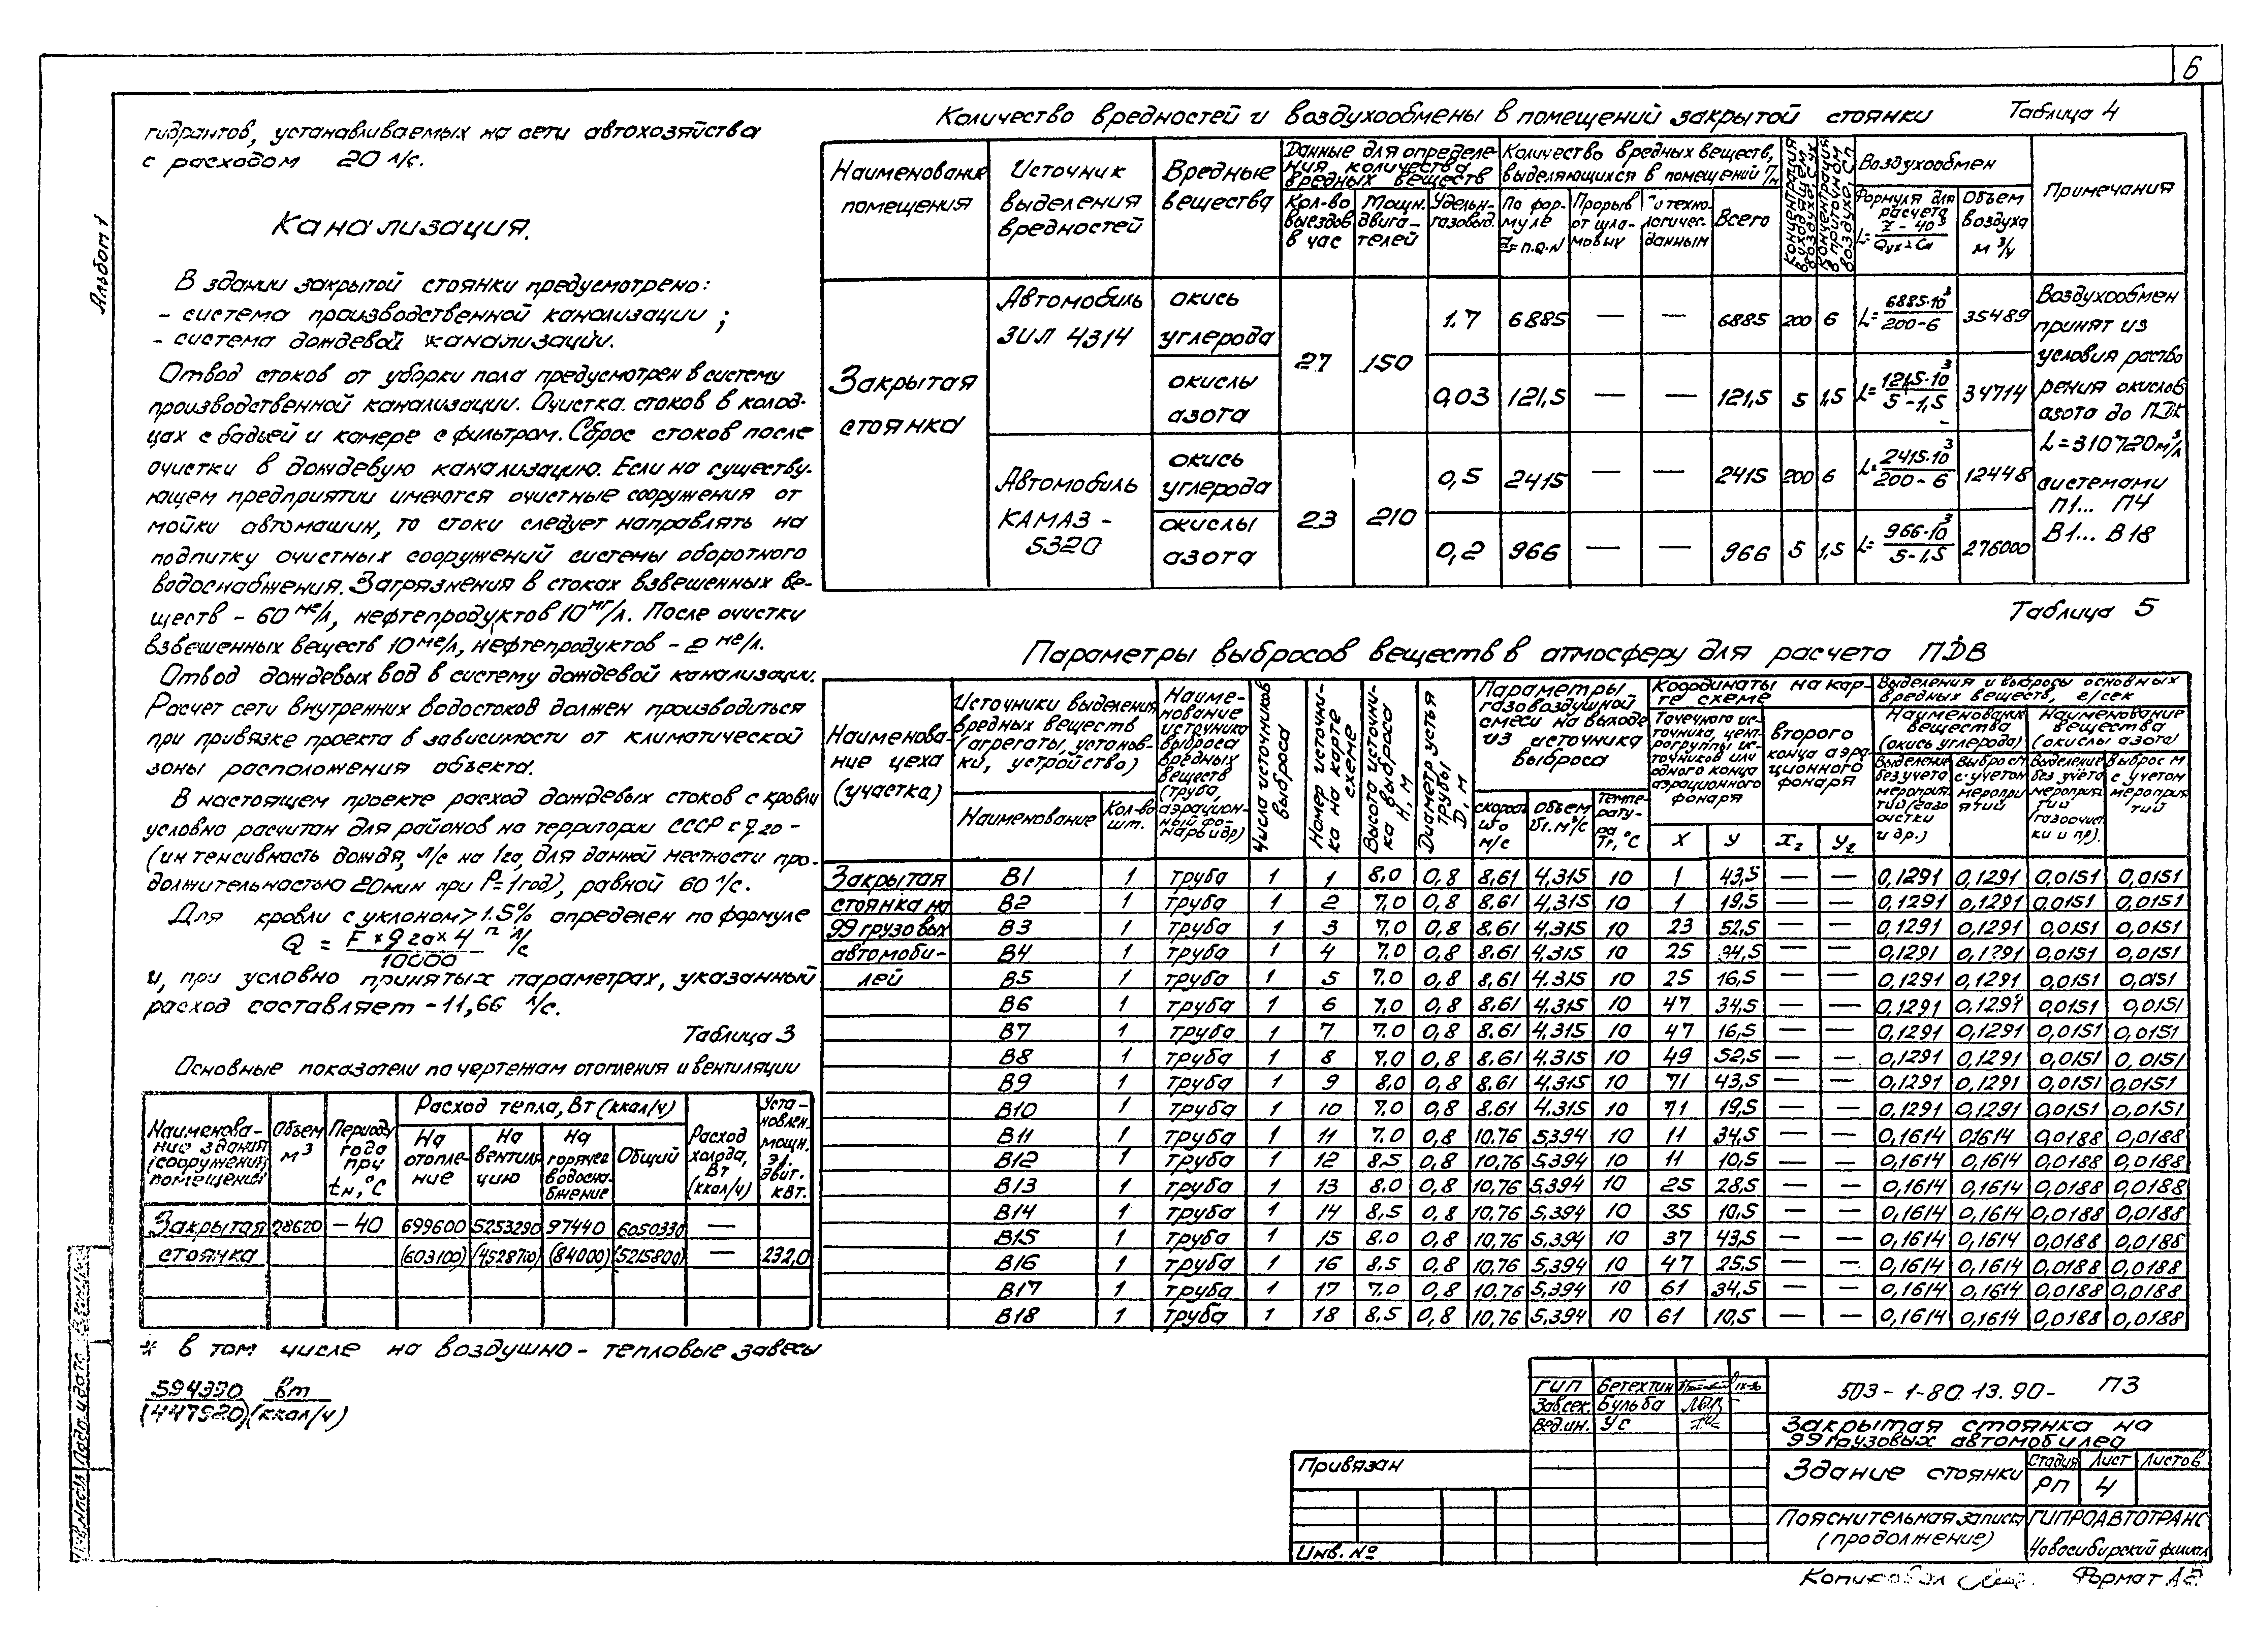 6
Альбом 1
гидрантов, устанавливаемых на сети автохозяйства
с расходом 20 л/с.
Канализация.
В здании закрытой стоянки предусмотрено:
- система производственной канализации ;
- система дождевой канализации.
Отвод стоков от уборки пола предусмотрен в систему
производственной канализации. Очистка стоков в колод-
цах с бадьей и камере с фильтром. Сброс стоков после
очистки в дождевую канализацию. Если на существу-
ющем предприятии имеются очистные сооружения от
мойки автомашин, то стоки следует направлять на
подпитку очистных сооружений системы оборотного
водоснабжения. Загрязнения в стоках взвешенных ве-
ществ - 60 мг/л, нефтепродуктов 10 мг/л. После очистки
взвешенных веществ 10 мг/л, нефтепродуктов - 2 мг/л.
Отвод дождевых вод в систему дождевой канализации.
Расчет сети внутренних водостоков должен производиться
при привязке проекта в зависимости от климатической
зоны расположения объекта.
В настоящем проекте расход дождевых стоков с кровли
условно расчитан для районов на территории СССР с q20 -
(интенсивность дождя, л/с на 1га, для данной местности про-
должительностью 20мин при P=1год), равной 60 л/с.
Для кровли с уклоном > 1.5% определен по формуле
Q = F × q20 × 4 n / 10000 л/с
и, при условно принятых параметрах, указанный
расход составляет - 11,66 л/с.
Таблица 3
Основные показатели по чертежам отопления и вентиляции
Наименова-ние здания (сооружения) помещения | Объем м3 | Периоды года при tн, °C | Расход тепла, Вт (ккал/ч) | Расход холода, Вт (ккал/ч) | Уста-новлен. мощн. эл. двиг. кВт.
На отопле-ние | На вентиля-цию | На горячее водосна-бжение | Общий
Закрытая 28620 -40 699600 5253290 97440 6050330 —
стоянка (603100) (4528700) (84000) (5215800) — 232,0
* в том числе на воздушно - тепловые завесы
594330 вт
(447520) (ккал/ч)
Количество вредностей и воздухообмены в помещений закрытой стоянки Таблица 4
Наименование помещения | Источник выделения вредностей | Вредные вещества | Данные для определе-ния количества вредных веществ | Количество вредных веществ, выделяющихся в помещений Г/ч | Концентрация в уходящем воздухе, Сух | Концентрация в приточном воздухе, Сп | Воздухообмен | Примечания
Кол-во выездов в час | Мощн. двига-телей | Удельн. газовыд. | По фор-муле Z=n.q.N | Прорыв от шла-мовых | По техно-логичес. данным | Всего | Формула для расчета | Объем воздуха м3/ч
Закрытая стоянка
Автомобиль ЗИЛ 4314 окись углерода 27 150 1.7 6885 — — 6885 200 6 L= 6885·10³ / 200-6 35489
окислы азота 0,03 121,5 — — 121,5 5 1,5 L= 121,5·10³ / 5-1,5 34714
Автомобиль КАМАЗ - 5320 окись углерода 23 210 0,5 2415 — — 2415 200 6 L= 2415·10³ / 200-6 12448
окислы азота 0,2 966 — — 966 5 1,5 L= 966·10³ / 5-1,5 276000
Воздухообмен
принят из
условия раство
рения окислов
азота до ПДК
L=310720м³/ч
системами
П1... П4
В1... В18
Таблица 5
Параметры выбросов веществ в атмосферу для расчета ПДВ
Наименова-ние цеха (участка) | Источники выделения вредных веществ (агрегаты, установ-ки, устройство) | Наиме-нование источника выброса вредных веществ (труба, аэрацион-ный фо-нарь и др) | Число источников выброса | Номер источни-ка на карте схеме | Высота источни-ка выброса Н, м | Диаметр устья трубы D, м | Параметры газовоздушной смеси на выходе из источника выброса | Координаты на кар-те схеме | Выделения и выбросы основных вредных веществ, г/сек
Наименование | Кол-во шт. | скорость Wo м/с | Объем V1. м³/с | Темпе-рату-ра Тг, °C | Точечного ис-точника, цент. рогруппы ис-точников или одного конца аэрационного фонаря | второго конца аэра-ционного фонаря | Наименование вещества (окись углерода) | Наименование вещества (окислы азота)
X | У | X2 | У2 | Выделение без учета мероприя-тий (газо очистки и др.) | Выброс м с учетом меропри ятий | Выделение без учета мероприя-тий (газоочист-ки и пр). | Выброс м с учетом мероприя тий
Закрытая В1 1 труба 1 1 8.0 0,8 8.61 4.315 10 1 43,5 — — 0,1291 0,1291 0,0151 0,0151
стоянка на В2 1 труба 1 2 7,0 0,8 8.61 4.315 10 1 19,5 — — 0,1291 0,1291 0,0151 0,0151
99 грузовых В3 1 труба 1 3 7,0 0,8 8.61 4.315 10 23 52,5 — — 0,1291 0,1291 0,0151 0,0151
автомоби- В4 1 труба 1 4 7.0 0,8 8.61 4.315 10 25 34,5 — — 0,1291 0,1291 0,0151 0,0151
лей В5 1 труба 1 5 7.0 0,8 8,61 4.315 10 25 16,5 — — 0,1291 0,1291 0,0151 0,0151
В6 1 труба 1 6 7,0 0,8 8.61 4.315 10 47 34,5 — — 0,1291 0,1291 0,0151 0,0151
В7 1 труба 1 7 7.0 0,8 8.61 4.315 10 47 16,5 — — 0,1291 0,1291 0,0151 0,0151
В8 1 труба 1 8 7,0 0,8 8.61 4.315 10 49 52,5 — — 0,1291 0,1291 0,0151 0,0151
В9 1 труба 1 9 8.0 0,8 8,61 4.315 10 71 43,5 — — 0,1291 0,1291 0,0151 0,0151
В10 1 труба 1 10 7.0 0,8 8.61 4.315 10 71 19,5 — — 0,1291 0,1291 0,0151 0,0151
В11 1 труба 1 11 7.0 0,8 10.76 5,394 10 11 34,5 — — 0,1614 0,1614 0,0188 0,0188
В12 1 труба 1 12 8.5 0,8 10,76 5.394 10 11 10,5 — — 0,1614 0,1614 0,0188 0,0188
В13 1 труба 1 13 8.0 0,8 10,76 5.394 10 25 28,5 — — 0,1614 0,1614 0,0188 0,0188
В14 1 труба 1 14 8,5 0,8 10.76 5.394 10 35 10,5 — — 0,1614 0,1614 0,0188 0,0188
В15 1 труба 1 15 8.0 0,8 10,76 5,394 10 37 43,5 — — 0,1614 0,1614 0,0188 0,0188
В16 1 труба 1 16 8.5 0,8 10,76 5,394 10 47 25,5 — — 0,1614 0,1614 0,0188 0,0188
В17 1 труба 1 17 7.0 0,8 10.76 5,394 10 61 34,5 — — 0,1614 0,1614 0,0188 0,0188
В18 1 труба 1 18 8.5 0,8 10,76 5.394 10 61 10,5 — — 0,1614 0,1614 0,0188 0,0188
ГИП Бетехтин
Зав.сек. Бульба
Вед.ин. Ус
503 - 1-80.13.90- ПЗ
Закрытая стоянка на
99 грузовых автомобилей
Здание стоянки
Стадия Лист Листов
РП 4
Пояснительная записка
(продолжение)
ГИПРОАВТОТРАНС
Новосибирский филиал
Привязан
Инв. №
Копировал
Формат А2